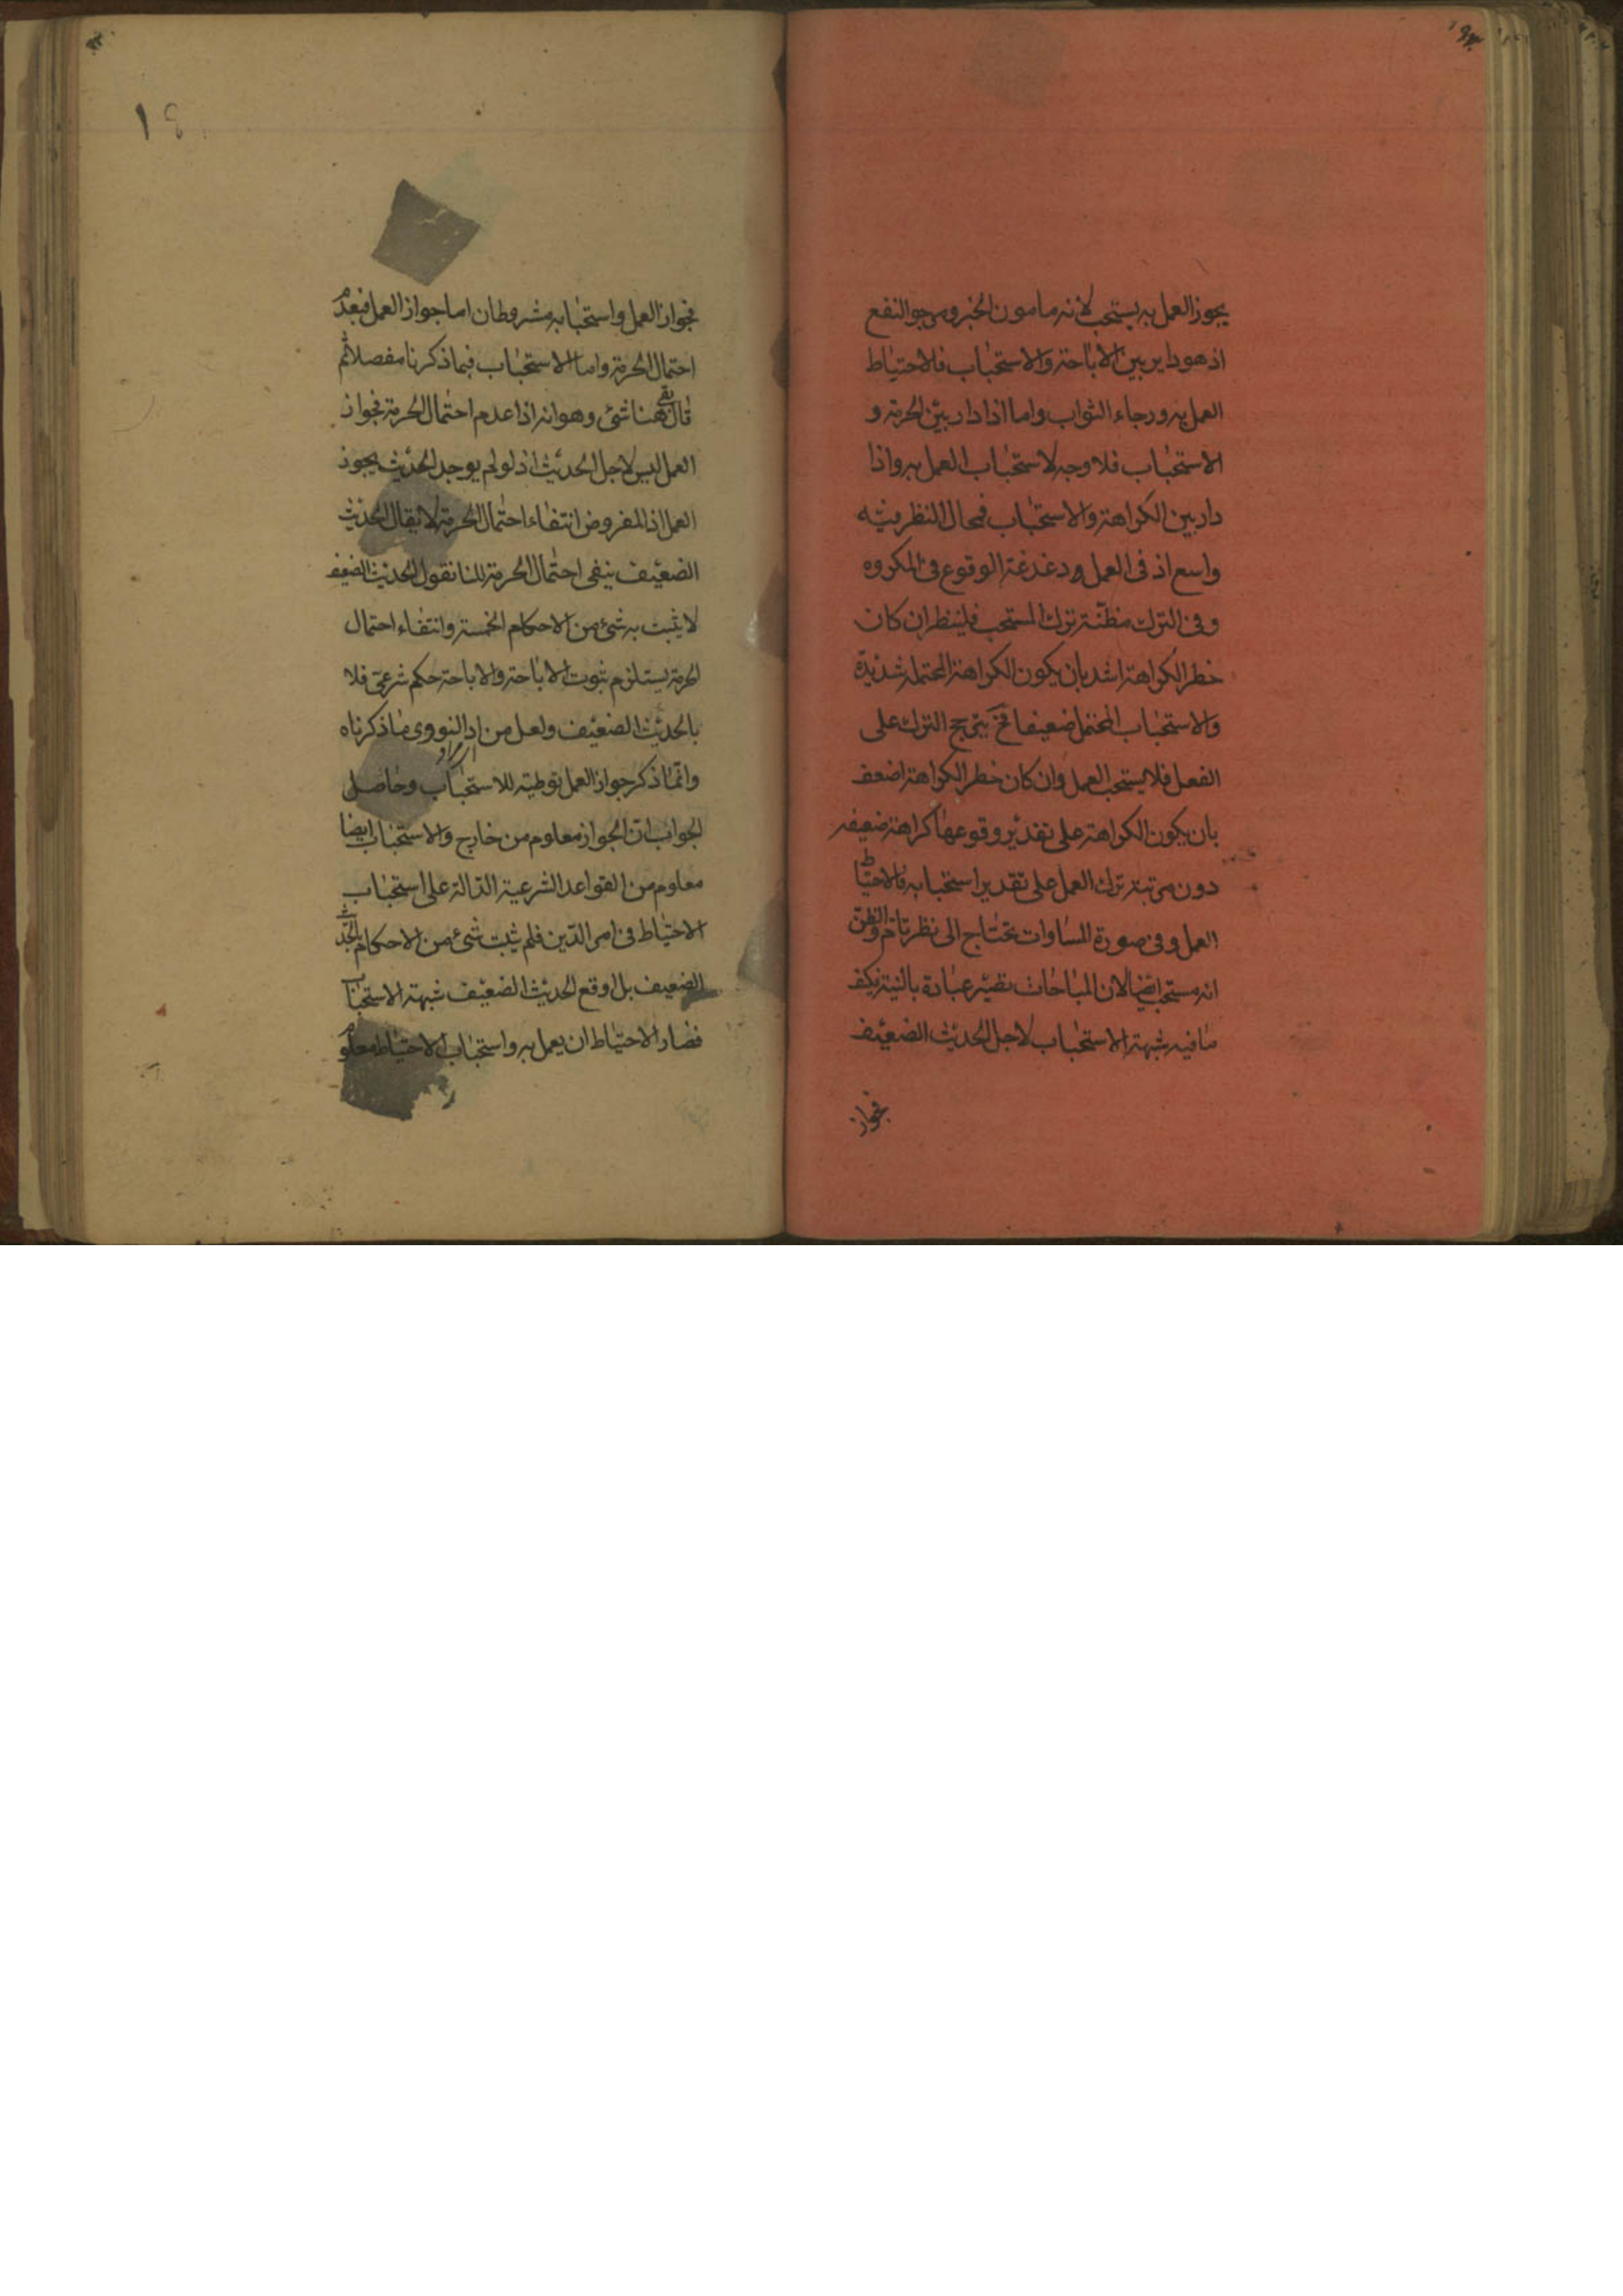 يجوز العمل به يستحب لأنه مامون الخبر ومرجو النفع
اذ هو داير بين الاباحة والاستحباب فلاحتياط
العمل به ورجاء الثواب واما اذا دار بين الحرمة و
الاستحباب فلا وجه لاستحباب العمل به واذا
دار بين الكراهة والاستحباب فمجال النظر فيه
واسع اذ فى العمل ودغدغة الوقوع فى المكروه
وفى الترك مظنة ترك المستحب فلينظر ان كان
خطر الكراهة اشد بان يكون الكراهة المحتملة شديدة
والاستحباب المحتمل ضعيفا فح يترجح الترك على
الفعل فلا يستحب العمل وان كان خطر الكراهة اضعف
بان يكون الكراهة على تقدير وقوعها كراهة ضعيفه
دون مرتبة ترك العمل على تقدير استحبابه فالاحتياط
العمل وفى صورة المساوات تحتاج الى نظر تام والظن
انه مستحب ايضا لان المباحات تصير عبادة بالنية فكيف
ما فيه شبهة الاستحباب لاجل الحديث الضعيف
فجواز
فجواز العمل واستحبابه مشروطان اما جواز العمل فبعدم
احتمال الحرمة واما الاستحباب فبما ذكرنا مفصلا ثم
قال بقى هنا شئ وهو انه اذا عدم احتمال الحرمة فجواز
العمل ليس لاجل الحديث اذ لو لم يوجد الحديث يجوز
العمل اذ المفروض انتفاء احتمال الحرمة لا يقال الحديث
الضعيف ينفى احتمال الحرمة لانا نقول الحديث الضعيف
لا يثبت به شئ من الاحكام الخمسة وانتفاء احتمال
الحرمة يستلزم ثبوت الاباحة والاباحة حكم شرعى فلا
بالحديث الضعيف ولعل من اد النووى ما ذكرناه
مراد
وانما ذكر جواز العمل توطية للاستحباب وحاصل
الجواب ان الجواز معلوم من خارج والاستحباب ايضا
معلوم من القواعد الشرعية الدالة على استحباب
الاحتياط فى امر الدين فلم يثبت شئ من الاحكام بالحديث
الضعيف بل اوقع الحديث الضعيف شبهة الاستحباب
فصار الاحتياط ان يعمل به واستحباب الاحتياط معلوم